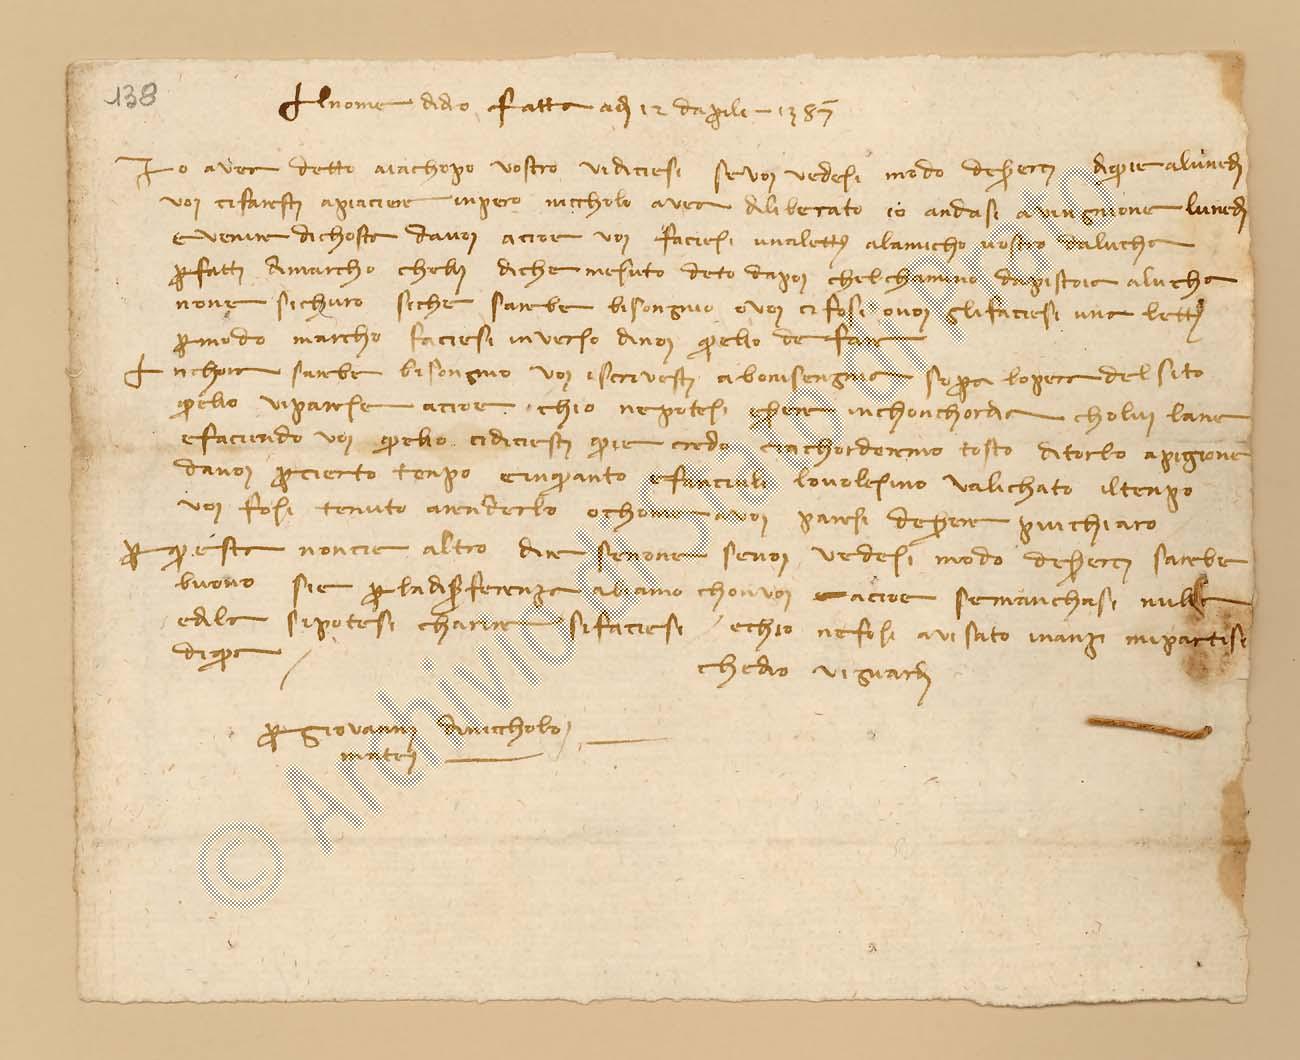 138
Al nome di dio fatta a dì 12 d'aprile 1387
Io avea detto a iachopo vostro vi diciesi se voi vedesi modo d'eserci di qui e a lunedì
voi ci faresti a piaciere inpero niccholo avea diliberato io andasi a vingnione lunedì
e venire di chosta da voi a cioe voi faciesi una lettera a l'amicho vostro da lucha
per fatti di marcho che lui diche m'e suto deto da poi ch'el chamino da pistoia a lucha
none sichuro siche sarebe bisongno o voi ci fosi o voi gli faciesi una lettera
per modo marcho faciesi inverso di noi quelo de fare
Anchora sarebe bisongno voi iscrivesti a bonisengna sopra l'opera del sito
quelo vi paresse a cioe ch'io ne potesi esere in chonchordia cholui l'ane
e faciendo voi quelo ci diciesti quie credo ci achorderemo tosto di torlo a pigione
da voi per cierto tenpo e in quanto e fanciuli lo volesino valichato il tenpo
voi fosi tenuto a renderlo o chome a voi paresi d'esere piu chiaro
per questa non c'ie altro dire se none se voi vedesi modo d'eserci sarebe
buono sie per la diferenza abiamo chon voi e a cioe se manchasi nulla
ed ela si potesi charire si faciesi / e ch'io ne fosi avisato inanzi mi partisi
di qua /
che dio vi guardi
per giovanni di niccholo
mattei
© Archivio di Stato di Prato